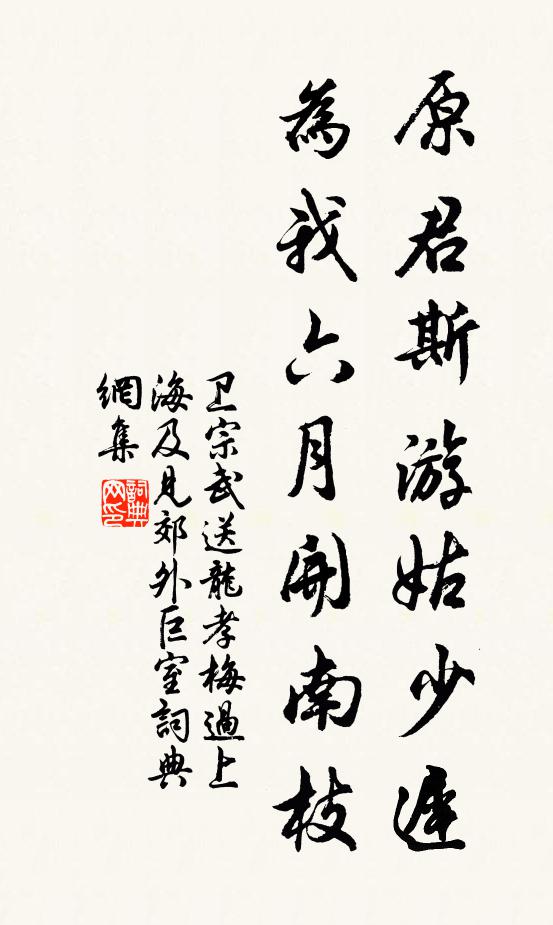 原君斯游姑少遲
為我六月開南枝
卫宗武送龍孝梅過上
海及見郊外巨室詞典
網集
詞典
网印